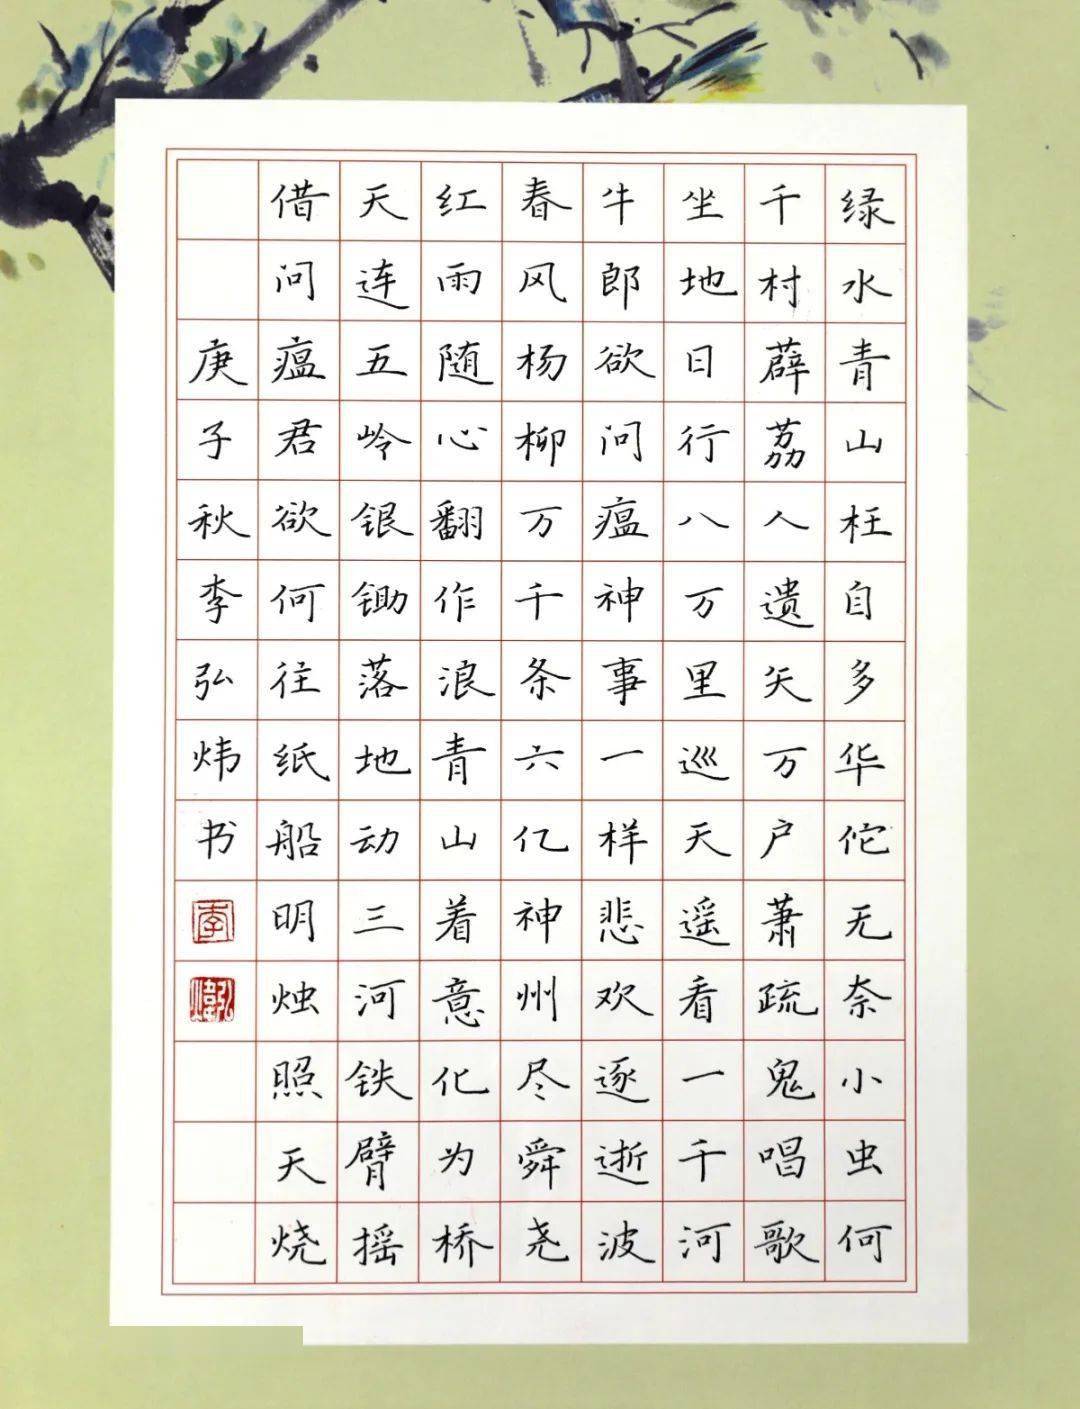 绿水青山枉自多华佗无奈小虫何
千村薜荔人遗矢万户萧疏鬼唱歌
坐地日行八万里巡天遥看一千河
牛郎欲问瘟神事一样悲欢逐逝波
春风杨柳万千条六亿神州尽舜尧
红雨随心翻作浪青山着意化为桥
天连五岭银锄落地动三河铁臂摇
借问瘟君欲何往纸船明烛照天烧
庚子秋李弘炜书
李
弘煒